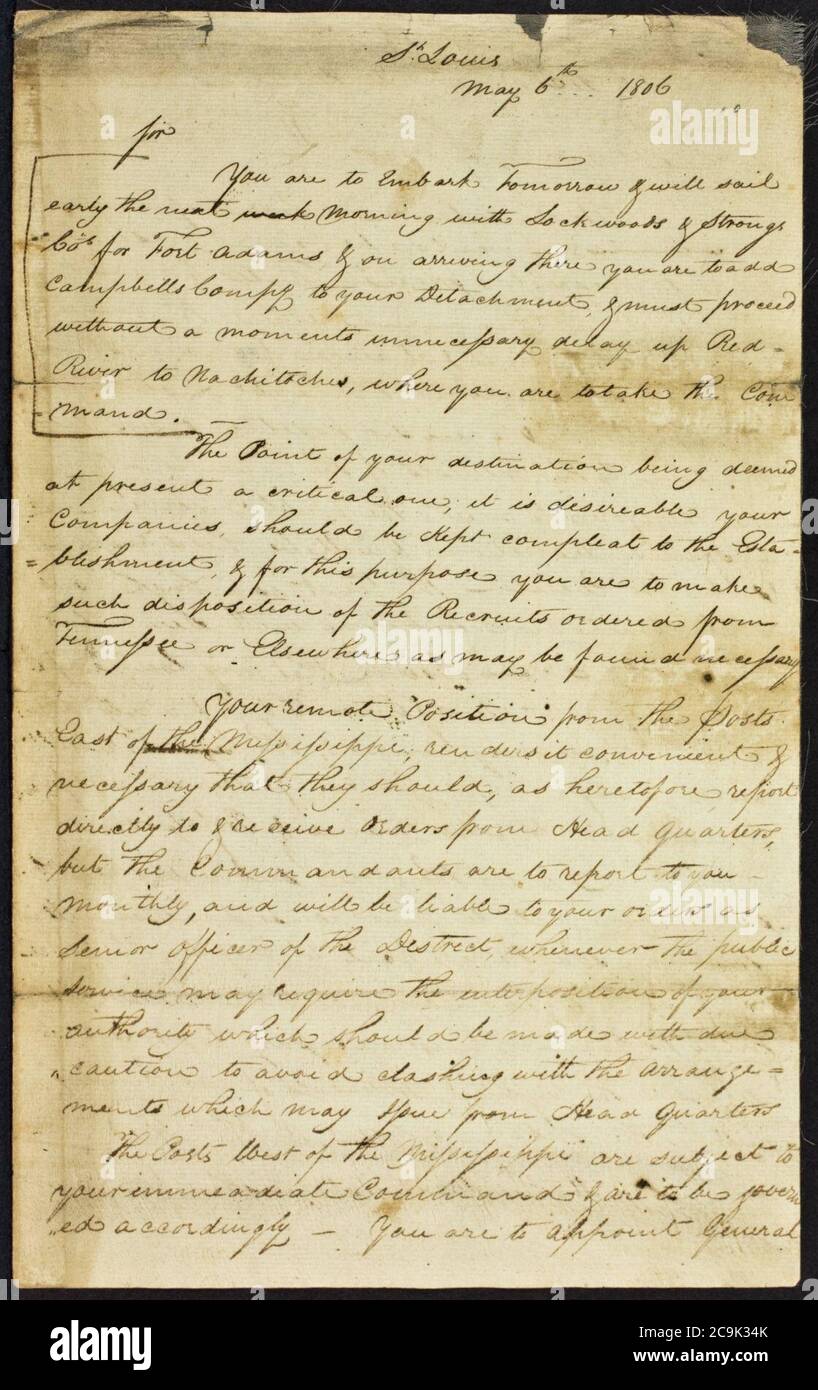 St. Louis
May 6th 1806
Sir
You are to Embark Tomorrow & will sail
early the next week Morning with Lockwoods & Strongs
Cos for Fort Adams & on arriving there you are to add
Campbells Compy to your Detachment, & must proceed
without a moments unnecessary delay up Red
River to Nachitoches, where you are to take the Com
mand.
The Point of your destination being deemed
at present a critical one, it is disireable your
Companies, should be kept compleat to the Esta-
=blishment, & for this purpose you are to make
such disposition of the Recruits ordered from
Tennessee or Elsewhere as may be found necessary
Your remote Position from the Posts
East of the Mississippi, renders it convenient &
necessary that they should, as heretofore report
directly to & receive orders from Head Quarters,
but the Commandants are to report to you
monthly, and will be liable to your orders as
Senior officer of the District, whenever the public
service may require the interposition of your
authority which should be made with due
"caution to avoid clashing with the arrange=
ments which may Issue from Head Quarters
The Posts West of the Mississippi are subject to
your immeadiate Command & are to be govern
"ed accordingly — You are to appoint General
alamy
alamy
Image ID: 2C9K34K
www.alamy.com